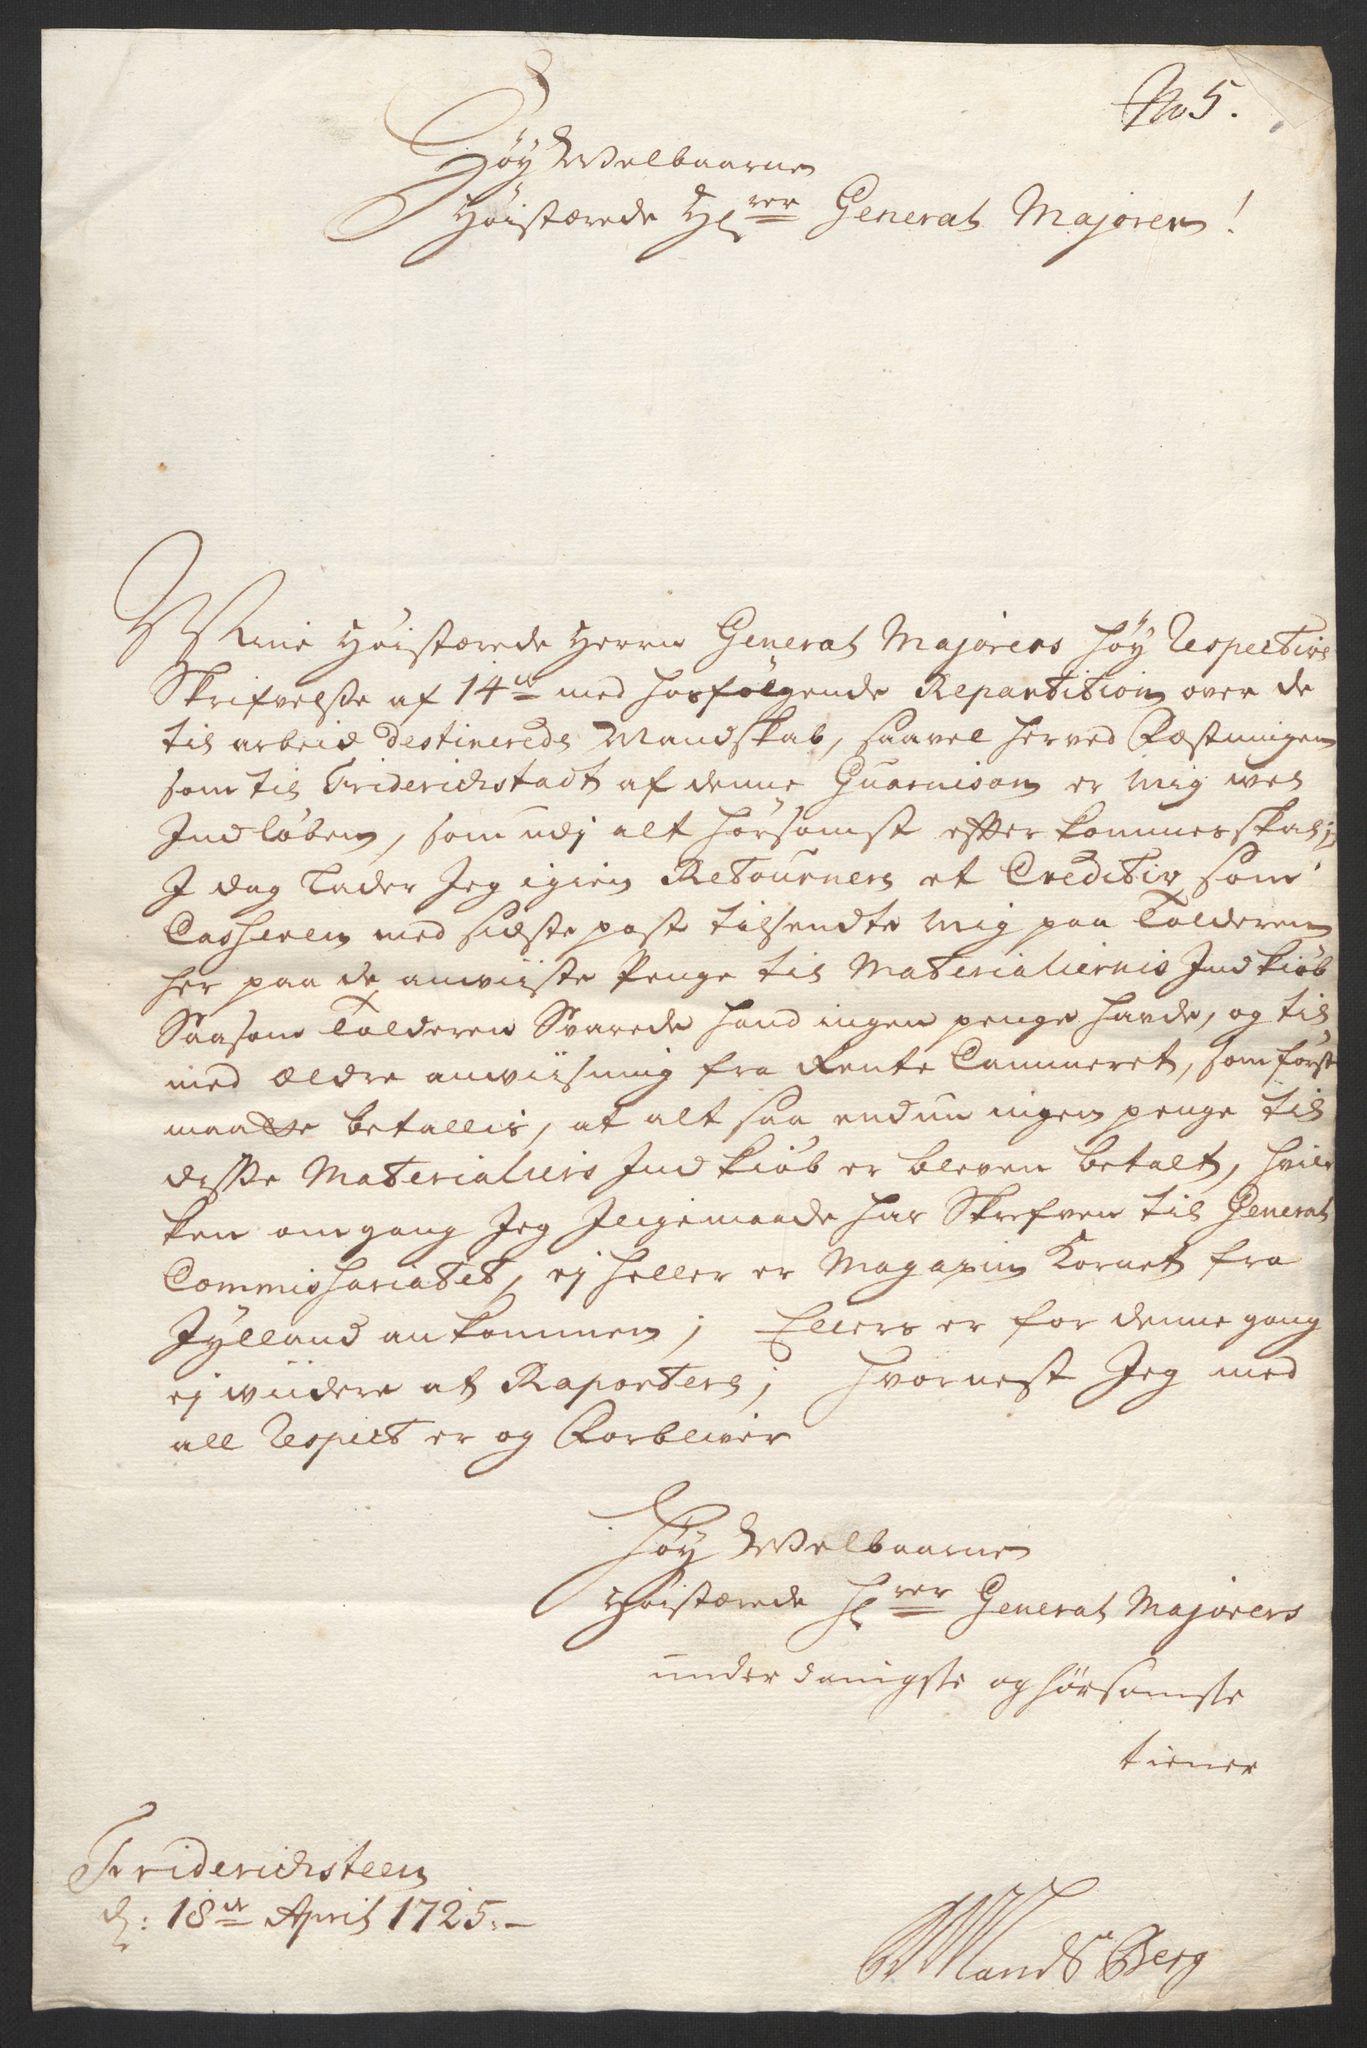 No 5.
Høy Welbaarne
Høistærede Hrer General Majoren!
Min Høistærede Herre General Majorens høy Respective
Skrifvelsse af 14de med hosfølgende Repartition over de
til arbeid destinerede Mandskab, saavel her ved Fæstningen
som til Friderichstadt af denne Guarnison er mig vel
Indløben, som udj alt hørsomst efterkommes skal;
J dag lader Jeg igien Retournere et Creditiv, som
Casheren med sidste post tilsendte mig paa Tolderen
her paa de anviiste Penge til Materialiernis Indkiøb
Saasom Tolderen Svarede hand ingen penge hafde, og til
med ældre anviisning fra Rente Cammeret, som først
maatte betallis, at alt saa endnu ingen penge til
disse Materialiers Indkiøb er bleven betalt, hvil
ken omgang Jeg Jligemaade har Skrefven til General
Commissariatet, ej heller er Magazin Kornet fra
Jylland ankommen; Ellers er for denne gang
ej viidere at Raportere; hvornest Jeg med
all Respect er og Forbliver
Høy Welbaarne
Høistærede Hrer General Majorens
underdanigste og hørsomste
tiener
Friderichsteen
d: 18de April 1725.
Landsberg